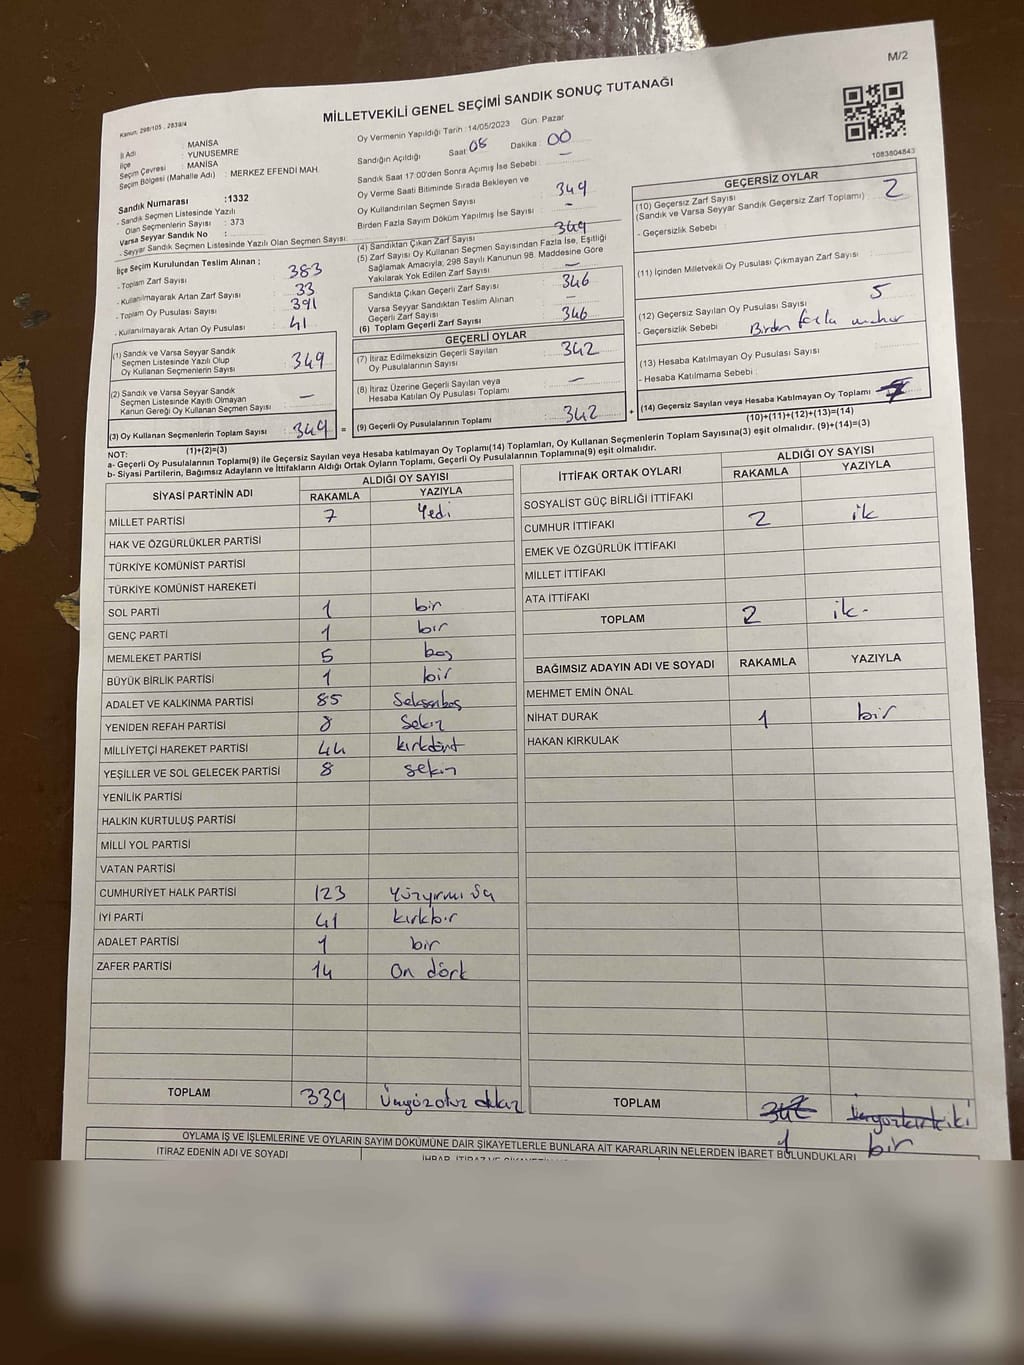 M/2
MİLLETVEKİLİ GENEL SEÇİMİ SANDIK SONUÇ TUTANAĞI
Kanun: 298/105 , 2839/4
İl Adı : MANİSA
İlçe : YUNUSEMRE
Seçim Çevresi : MANİSA
Seçim Bölgesi (Mahalle Adı) : MERKEZ EFENDİ MAH.
Sandık Numarası :1332
- Sandık Seçmen Listesinde Yazılı
Olan Seçmenlerin Sayısı : 373
Varsa Seyyar Sandık No :
- Seyyar Sandık Seçmen Listesinde Yazılı Olan Seçmen Sayısı:
İlçe Seçim Kurulundan Teslim Alınan ;
- Toplam Zarf Sayısı : 383
- Kullanılmayarak Artan Zarf Sayısı : 33
- Toplam Oy Pusulası Sayısı : 391
- Kullanılmayarak Artan Oy Pusulası : 41
(1) Sandık ve Varsa Seyyar Sandık
Seçmen Listesinde Yazılı Olup
Oy Kullanan Seçmenlerin Sayısı : 349
(2) Sandık ve Varsa Seyyar Sandık
Seçmen Listesinde Kayıtlı Olmayan
Kanun Gereği Oy Kullanan Seçmen Sayısı : —
(3) Oy Kullanan Seçmenlerin Toplam Sayısı : 349
(1)+(2)=(3)
Oy Vermenin Yapıldığı Tarih : 14/05/2023 Gün: Pazar
Sandığın Açıldığı Saat: 08 Dakika : 00
Sandık Saat 17:00'den Sonra Açılmış İse Sebebi : —
Oy Verme Saati Bitiminde Sırada Bekleyen ve
Oy Kullandırılan Seçmen Sayısı : 349
Birden Fazla Sayım Döküm Yapılmış İse Sayısı : -
(4) Sandıktan Çıkan Zarf Sayısı : 349
(5) Zarf Sayısı Oy Kullanan Seçmen Sayısından Fazla İse, Eşitliği
Sağlamak Amacıyla, 298 Sayılı Kanunun 98. Maddesine Göre
Yakılarak Yok Edilen Zarf Sayısı : —
Sandıkta Çıkan Geçerli Zarf Sayısı : 346
Varsa Seyyar Sandıktan Teslim Alınan
Geçerli Zarf Sayısı : —
(6) Toplam Geçerli Zarf Sayısı : 346
GEÇERLİ OYLAR
(7) İtiraz Edilmeksizin Geçerli Sayılan
Oy Pusulalarının Sayısı : 342
(8) İtiraz Üzerine Geçerli Sayılan veya
Hesaba Katılan Oy Pusulası Toplamı : —
= (9) Geçerli Oy Pusulalarının Toplamı : 342 +
1083804843
GEÇERSİZ OYLAR
(10) Geçersiz Zarf Sayısı
(Sandık ve Varsa Seyyar Sandık Geçersiz Zarf Toplamı) : 2
- Geçersizlik Sebebi :
(11) İçinden Milletvekili Oy Pusulası Çıkmayan Zarf Sayısı :
(12) Geçersiz Sayılan Oy Pusulası Sayısı : 5
- Geçersizlik Sebebi : Birden fazla mühür
(13) Hesaba Katılmayan Oy Pusulası Sayısı :
- Hesaba Katılmama Sebebi :
(14) Geçersiz Sayılan veya Hesaba Katılmayan Oy Toplamı : 7
(10)+(11)+(12)+(13)=(14)
NOT:
a- Geçerli Oy Pusulalarının Toplamı(9) ile Geçersiz Sayılan veya Hesaba katılmayan Oy Toplamı(14) Toplamları, Oy Kullanan Seçmenlerin Toplam Sayısına(3) eşit olmalıdır. (9)+(14)=(3)
b- Siyasi Partilerin, Bağımsız Adayların ve İttifakların Aldığı Ortak Oyların Toplamı, Geçerli Oy Pusulalarının Toplamına(9) eşit olmalıdır.
SİYASİ PARTİNİN ADI ALDIĞI OY SAYISI
RAKAMLA YAZIYLA
MİLLET PARTİSİ 7 Yedi
HAK VE ÖZGÜRLÜKLER PARTİSİ
TÜRKİYE KOMÜNİST PARTİSİ
TÜRKİYE KOMÜNİST HAREKETİ
SOL PARTİ 1 bir
GENÇ PARTİ 1 bir
MEMLEKET PARTİSİ 5 beş
BÜYÜK BİRLİK PARTİSİ 1 bir
ADALET VE KALKINMA PARTİSİ 85 Seksenbeş
YENİDEN REFAH PARTİSİ 8 Sekiz
MİLLİYETÇİ HAREKET PARTİSİ 44 kırkdört
YEŞİLLER VE SOL GELECEK PARTİSİ 8 sekiz
YENİLİK PARTİSİ
HALKIN KURTULUŞ PARTİSİ
MİLLİ YOL PARTİSİ
VATAN PARTİSİ
CUMHURİYET HALK PARTİSİ 123 Yüzyirmi üç
İYİ PARTİ 41 kırkbir
ADALET PARTİSİ 1 bir
ZAFER PARTİSİ 14 On dört
TOPLAM 339 Üçyüzotuz dokuz
İTTİFAK ORTAK OYLARI ALDIĞI OY SAYISI
RAKAMLA YAZIYLA
SOSYALİST GÜÇ BİRLİĞİ İTTİFAKI
CUMHUR İTTİFAKI 2 iki
EMEK VE ÖZGÜRLÜK İTTİFAKI
MİLLET İTTİFAKI
ATA İTTİFAKI
TOPLAM 2 iki
BAĞIMSIZ ADAYIN ADI VE SOYADI RAKAMLA YAZIYLA
MEHMET EMİN ÖNAL
NİHAT DURAK 1 bir
HAKAN KIRKULAK
TOPLAM 342 üçyüzkırkiki
1 bir
OYLAMA İŞ VE İŞLEMLERİNE VE OYLARIN SAYIM DÖKÜMÜNE DAİR ŞİKAYETLERLE BUNLARA AİT KARARLARIN NELERDEN İBARET BULUNDUKLARI
İTİRAZ EDENİN ADI VE SOYADI